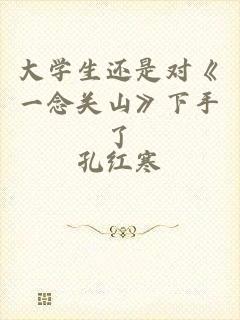 大学生还是对《
一念关山》下手
了
孔红寒